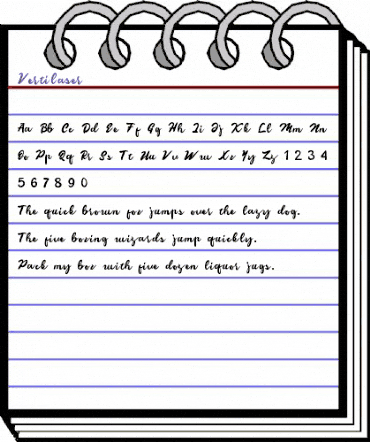 Vertilaser
Aa Bb Cc Dd Ee Ff Gg Hh Ii Jj Kk Ll Mm Nn
Oo Pp Qq Rr Ss Tt Uu Vv Ww Xx Yy Zz 1 2 3 4
5 6 7 8 9 0
The quick brown fox jumps over the lazy dog.
The five boxing wizards jump quickly.
Pack my box with five dozen liquor jugs.